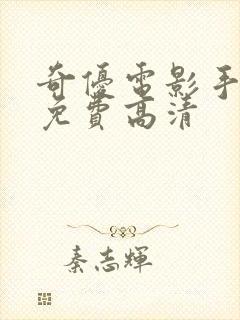 奇優電影手
免費高清
秦志輝